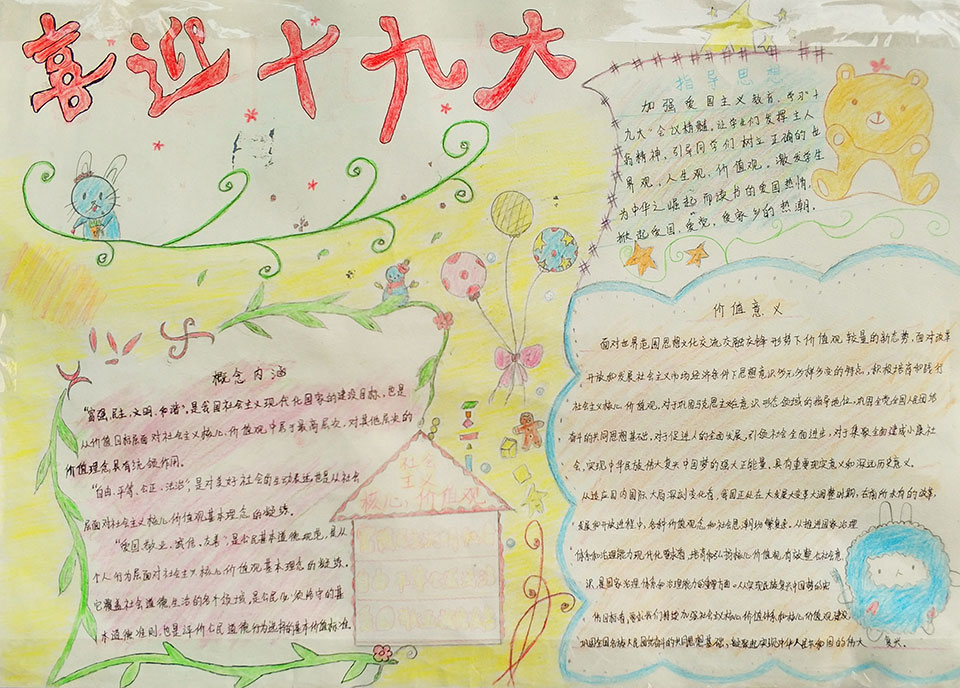 喜迎十九大
指导思想
加强爱国主义教育,学习“十
九大”会议精髓,让学生们发挥主人
翁精神,引导同学们树立正确的世
界观、人生观、价值观。激发学生
为中华之崛起而读书的爱国热情,
掀起爱国、爱党、爱家乡的热潮。
概念内涵
“富强、民主、文明、和谐”,是我国社会主义现代化国家的建设目标,也是
从价值目标层面对社会主义核心价值观
中居于最高层次,对其他层次的
价值理念具有统领作用。
“自由、平等、公正、法治”,是对美好社会的生动表述,也是从社会
层面对社会主义核心价值观基本理念的凝练。
“爱国、敬业、诚信、友善”,是公民基本道德规范,是从
个人行为层面对社会主义核心价值观基本理念的凝练。
它覆盖社会道德生活的各个领域,是公民必须恪守的基
本道德准则,也是评价公民道德行为选择的基本价值标准。
社会
主义
核心价值观
价值意义
面对世界范围思想文化交流交融交锋形势下价值观较量的新态势,面对改革
开放和发展社会主义市场经济条件下思想意识多元多样多变的特点,积极培育和践行
社会主义核心价值观,对于巩固马克思主义在意识形态领域的指导地位,巩固全党全国人民团结
奋斗的共同思想基础,对于促进人的全面发展、引领社会全面进步,对于集聚全面建成小康社
会、实现中华民族伟大复兴中国梦的强大正能量,具有重要现实意义和深远历史意义。
从适应国内国际大局深刻变化看,我国正处在大发展大变革大调整时期,在前所未有的改革、
发展和开放进程中,各种价值观念和社会思潮纷繁复杂。从推进国家治理
体系和治理能力现代化要求看,培育和弘扬核心价值观,有效整合社会意
识,是国家治理体系和治理能力的重要方面。从实现民族复兴中国梦的宏
伟目标看,
加强社会主义核心价值体系和核心价值观建设,
巩固全国各族人民团结奋斗的共同思想基础,
复兴。